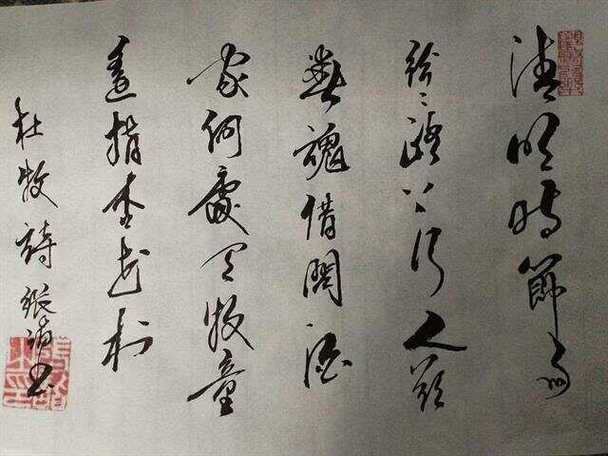 清明時節雨
紛〻路上行人欲
斷魂借問酒
家何處有牧童
遙指杏花村
杜牧詩 張书